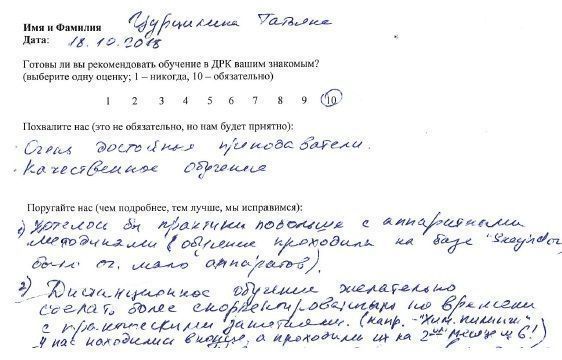 Имя и Фамилия Цурцилина Татьяна
Дата: 18.10.2018
Готовы ли вы рекомендовать обучение в ДРК вашим знакомым?
(выберите одну оценку; 1 – никогда, 10 – обязательно)
1 2 3 4 5 6 7 8 9 10
Похвалите нас (это не обязательно, но нам будет приятно):
· Очень достойные преподаватели.
· Качественное обучение
Поругайте нас (чем подробнее, тем лучше, мы исправимся):
1) Хотелось бы практики побольше с аппаратными
методиками (обучение проходило на базе
было оч. мало аппаратов).
2) Дистанционное обучение желательно
сделать более скорректированным по времени
с практическими занятиями. (напр. - "Хим. пилинги"
у нас находились в конце, а проходили их на 2ой неделе из 6!)